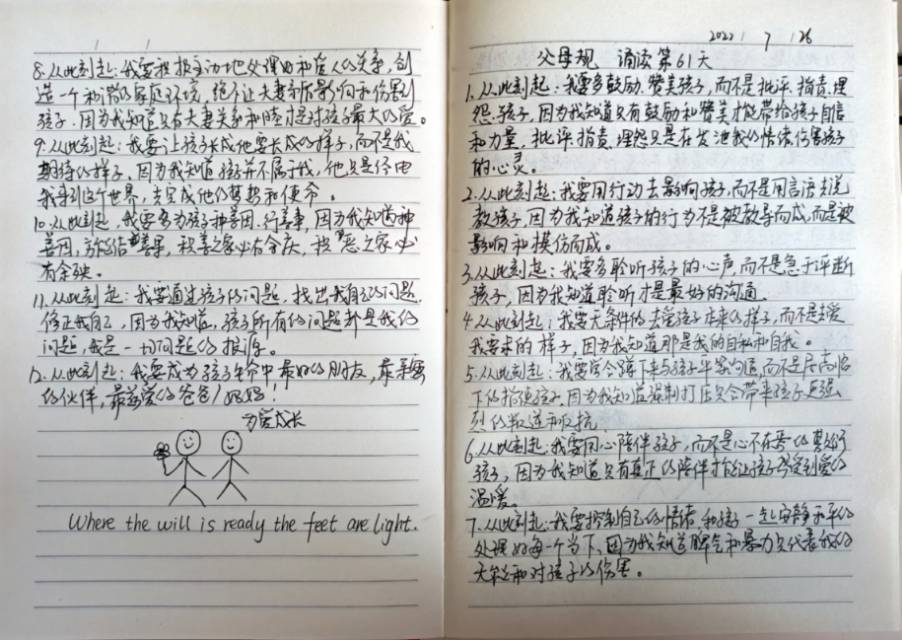 2022 7 26
父母规 诵读第61天
1.从此刻起:我要多鼓励、赞美孩子,而不是批评、指责、埋
怨孩子,因为我知道只有鼓励和赞美才能带给孩子自信
和力量,批评、指责、埋怨只是在发泄我的情绪,伤害孩子
的心灵。
2.从此刻起:我要用行动去影响孩子,而不是用言语去说
教孩子,因为我知道孩子的行为不是被教导而成,而是被
影响和模仿而成。
3.从此刻起:我要多聆听孩子的心声,而不是急于评断
孩子,因为我知道聆听才是最好的沟通。
4.从此刻起:我要无条件的去爱孩子本来的样子,而不是去爱
我要求的样子,因为我知道那是我的自私和自我。
5.从此刻起:我要学会蹲下来与孩子平等沟通,而不是居高临
下的指使孩子,因为我知道强制打压只会带来孩子更强
烈的叛逆和反抗。
6.从此刻起:我要用心陪伴孩子,而不是心不在焉的敷衍
孩子,因为我知道只有真正的陪伴才能让孩子感受到爱的
温暖。
7.从此刻起:我要控制自己的情绪,和孩子一起安静平和的
处理好每一个当下,因为我知道脾气和暴力只代表我的
无能和对孩子的伤害。
8.从此刻起:我要积极主动地处理好和爱人的关系,创
造一个和谐的家庭环境,绝不让夫妻矛盾影响和伤害到
孩子,因为我知道只有夫妻关系和睦才是对孩子最大的爱。
9.从此刻起:我要让孩子长成他要长成的样子,而不是我
期待的样子,因为我知道孩子并不属于我,他只是经由
我来到这个世界,去完成他的梦想和使命。
10.从此刻起,我要多为孩子种善因,行善事,因为我知道种
善因,方能结善果,积善之家必有余庆,积恶之家必
有余殃。
11.从此刻起:我要通过孩子的问题,找出我自己的问题,
修正我自己,因为我知道,孩子所有的问题都是我的
问题,我是一切问题的根源。
12.从此刻起:我要成为孩子生命中最好的朋友,最亲密
的伙伴,最慈爱的爸爸/妈妈!
为爱成长
Where the will is ready the feet are light.